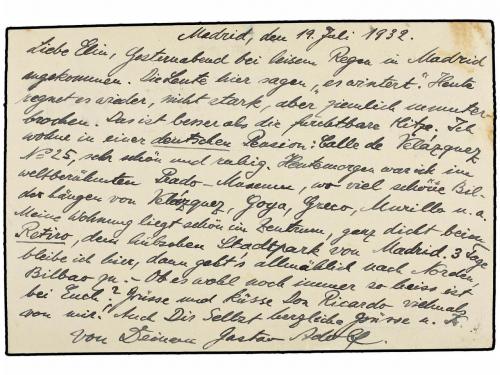 Madrid, den 19. Juli 1932.
Liebe Elin, Gesternabend bei leisem Regen in Madrid
angekommen. Die Leute hier sagen „es wintert“. Heute
regnet es wieder, nicht stark, aber ziemlich ununter-
brochen. Das ist besser als die furchtbare Hitze. Ich
wohne in einer deutschen Pension: Calle de Velázquez
Nº 25, sehr schön und ruhig. Heutemorgen war ich im
weltberühmten Prado-Museum, wo viel schöne Bil-
der hängen von Velázquez, Goya, Greco, Murillo u. a.
Meine Wohnung liegt schön im Zentrum, ganz dicht beim
Retiro, dem hübschen Stadtpark von Madrid. 3 Tage
bleibe ich hier, dann geht's allmählich nach Norden,
Bilbao zu. - Ob es wohl noch immer so heiss ist
bei Euch? Grüsse und küsse Don Ricardo vielmals
von mir. Auch Dir Selbst herzliche Grüsse u. K.
von Deinem Gustav Adolf.